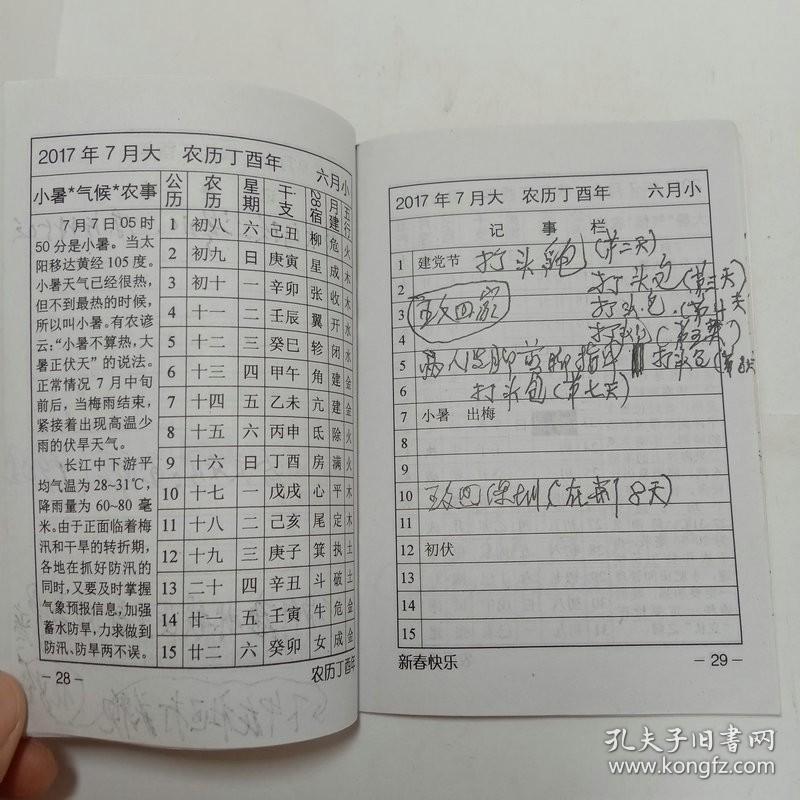 2017年7月大 农历丁酉年 六月小
小暑*气候*农事
7月7日05时
50分是小暑。当太
阳移达黄经105度。
小暑天气已经很热，
但不到最热的时候，
所以叫小暑。有农谚
云：“小暑不算热，大
暑正伏天”的说法。
正常情况7月中旬
前后，当梅雨结束，
紧接着出现高温少
雨的伏旱天气。
长江中下游平
均气温为28~31℃，
降雨量为60~80毫
米。由于正面临着梅
汛和干旱的转折期，
各地在抓好防汛的
同时，又要及时掌握
气象预报信息，加强
蓄水防旱，力求做到
防汛、防旱两不误。
公历 农历 星期 干支 28宿 月建 五行
1 初八 六 己丑 柳 危 火
2 初九 日 庚寅 星 成 木
3 初十 一 辛卯 张 收 木
4 十一 二 壬辰 翼 开 水
5 十二 三 癸巳 轸 闭 水
6 十三 四 甲午 角 建 金
7 十四 五 乙未 亢 建 金
8 十五 六 丙申 氐 除 火
9 十六 日 丁酉 房 满 火
10 十七 一 戊戌 心 平 木
11 十八 二 己亥 尾 定 木
12 十九 三 庚子 箕 执 土
13 二十 四 辛丑 斗 破 土
14 廿一 五 壬寅 牛 危 金
15 廿二 六 癸卯 女 成 金
－28－ 农历丁酉年
2017年7月大 农历丁酉年 六月小
记事栏
1 建党节 打头包(第二天)
2 打头包(第三天)
3 打头包(第四天
4 打头包(第五天)
5 打头包(第六天
6 打头包(第七天)
7 小暑 出梅
8
9
10 8天)
11
12 初伏
13
14
15
新春快乐 －29－
孔夫子旧书网
www.kongfz.com